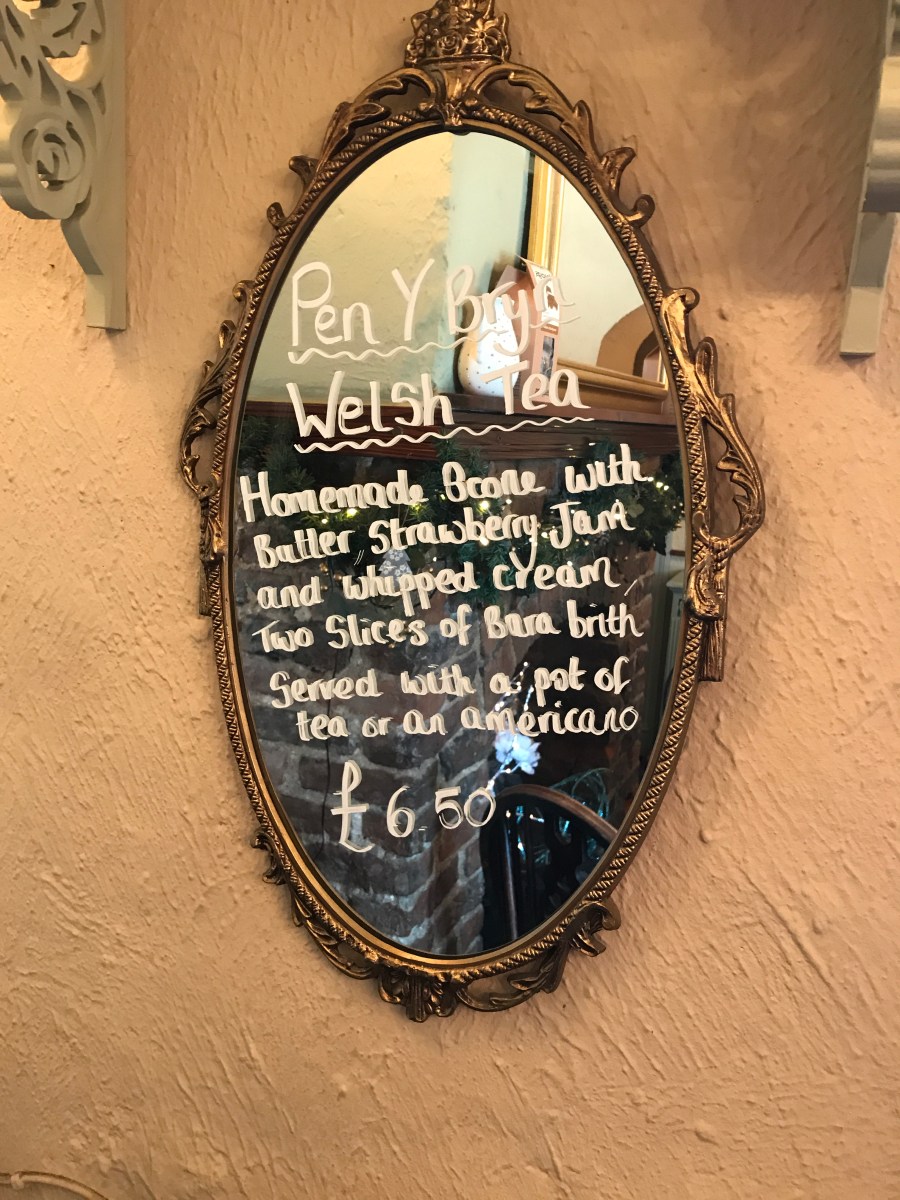 Pen Y Bryn
Welsh Tea
Homemade Scone with
Butter, Strawberry Jam
and whipped cream,
Two Slices of Bara brith
Served with a pot of
tea or an americano
£6.50